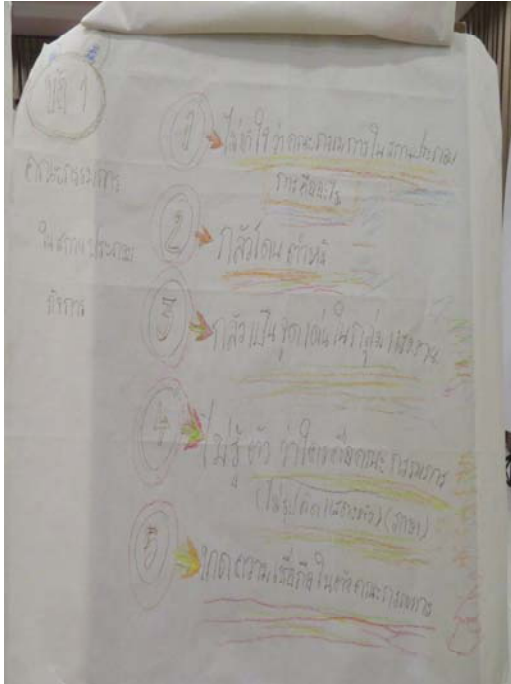 ข้อ 1
คณะกรรมการ
ในสถานประกอบ
กิจการ
1 ไม่เข้าใจว่าคณะกรรมการในสถานประกอบ
การคืออะไร
2 กลัวโดนตำหนิ
3 กลัวเป็นจุดเด่นในกลุ่มแรงงาน
4 ไม่รู้ตัวว่าใครคือคณะกรรมการ
(ไม่รูปติดแสดงตัว) (ภาษา)
5 ขาดความเชื่อถือในตัวคณะกรรมการ